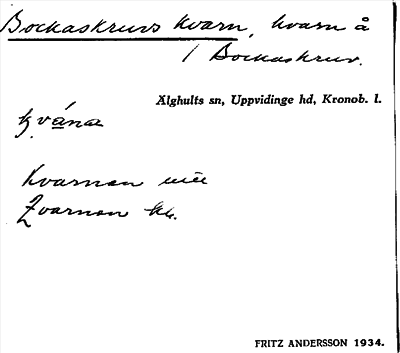 Bockaskruvs kvarn, kvarn å
/ Bockaskruv.
Älghults sn, Uppvidinge hd, Kronob. l.
kvána
kvarnen
kvarnen
FRITZ ANDERSSON 1934.